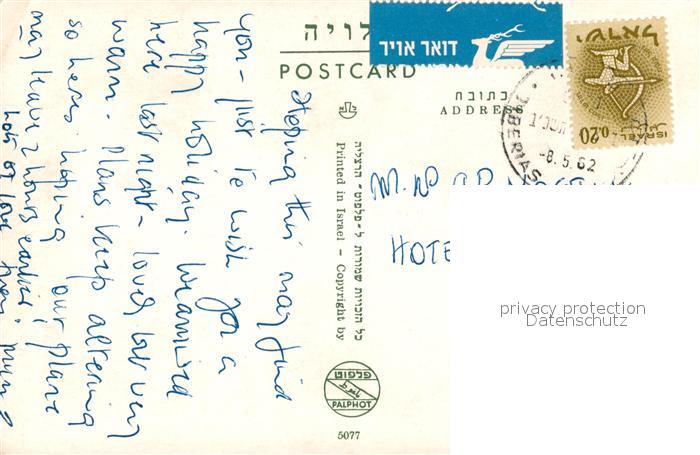 גלויה
POSTCARD
דואר אויר
ישראל
ISRAEL
0.20
TIBERIAS
-8.5.62
כתובת
ADDRESS
Hoping this may find
you - just to wish you a
happy holiday. We arrived
here last night - lovely but very
warm. Plans keep altering
so heres hoping our plane
may leave 2 hours earlier!
lots of love from
כל הזכויות שמורות ל-פלפוט - הרצליה
Printed in Israel - Copyright by
פלפוט
PALPHOT
5077
HOTE
privacy protection
Datenschutz